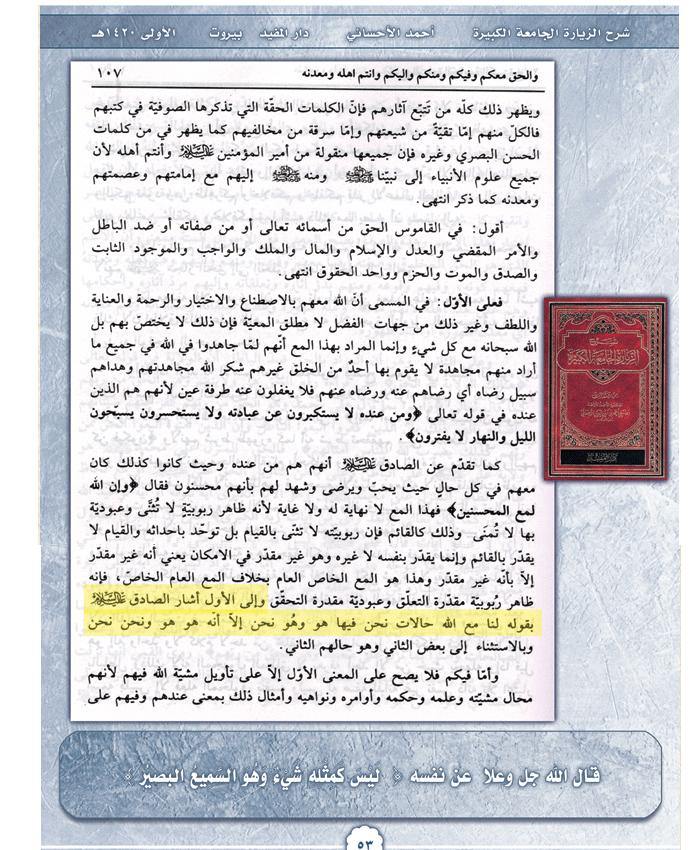 شرح الزيارة الجامعة الكبيرة أحمد الأحسائي دار المفيد بيروت الأولى ١٤٢٠هـ
والحق معكم وفيكم ومنكم واليكم وانتم اهله ومعدنه ١٠٧
ويظهر ذلك كلّه من تَتبّع آثارهم فإنّ الكلمات الحقّة التي تذكرها الصوفيّة في كتبهم
فالكلّ منهم إمّا تقيّةً من شيعتهم وإمّا سرقة من مخالفيهم كما يظهر في من كلمات
الحسن البصري وغيره فإن جميعها منقولة من أمير المؤمنين عليه السلام وأنتم أهله لأن
جميع علوم الأنبياء إلى نبيّنا ﷺ ومنه ﷺ إليهم مع إمامتهم وعصمتهم
ومعدنه كما ذكر انتهى.
أقول: في القاموس الحق من أسمائه تعالى أو من صفاته أو ضد الباطل
والأمر المقضي والعدل والإسلام والمال والملك والواجب والموجود الثابت
والصدق والموت والحزم وواحد الحقوق انتهى.
فعلى الأوّل: في المسمى أنّ الله معهم بالاصطناع والاختيار والرحمة والعناية
واللطف وغير ذلك من جهات الفضل لا مطلق المعيّة فإن ذلك لا يختصّ بهم بل
الله سبحانه مع كل شيءٍ وإنما المراد بهذا المع أنّهم لمّا جاهدوا في الله في جميع ما
أراد منهم مجاهدة لا يقوم بها أحدٌ من الخلق غيرهم شكر الله مجاهدتهم وهداهم
سبيل رضاه أي رضاهم عنه ورضاه عنهم فلا يغفلون عنه طرفة عين لأنهم هم الذين
عنده في قوله تعالى ﴿ومن عنده لا يستكبرون عن عبادته ولا يستحسرون يسبّحون
الليل والنهار لا يفترون﴾.
كما تقدّم عن الصادق عليه السلام أنهم هم من عنده وحيث كانوا كذلك كان
معهم في كل حالٍ حيث يحبّ ويرضى وشهد لهم بأنهم محسنون فقال ﴿وإن الله
لمع المحسنين﴾ فهذا المع لا نهاية له ولا غاية لأنه ظاهر ربوبيةٍ لا تُثنَّى وعبوديّة
بها لا تُمنَى وذلك كالقائم فإن ربوبيّته لا تثنّى بالقيام بل توحّد باحداثه والقيام لا
يقدّر بالقائم وإنما يقدّر بنفسه لا غيره وهو غير مقدّر في الامكان يعني أنه غير مقدّر
إلاّ بأنّه غير مقدّر وهذا هو المع الخاص العام بخلاف المع العام الخاصّ، فإنه
ظاهر ربُوبية مقدّرة التعلّق وعبوديّة مقدرة التحقّق وإلى الأول أشار الصادق عليه السلام
بقوله لنا مع الله حالات نحن فيها هو وهُو نحن إلاّ أنّه هو هو ونحن نحن
وبالاستثناء إلى بعض الثاني وهو حالهم الثاني.
وأمّا فيكم فلا يصح على المعنى الأوّل إلاّ على تأويل مشيّة الله فيهم لأنهم
محال مشيّته وعلمه وحكمه وأوامره ونواهيه وأمثال ذلك بمعنى عندهم وفيهم على
شرح
الزيارة الجامعة الكبيرة
قال الله جل وعلا عن نفسه ﴿ ليس كمثله شيء وهو السميع البصير ﴾
٥٣